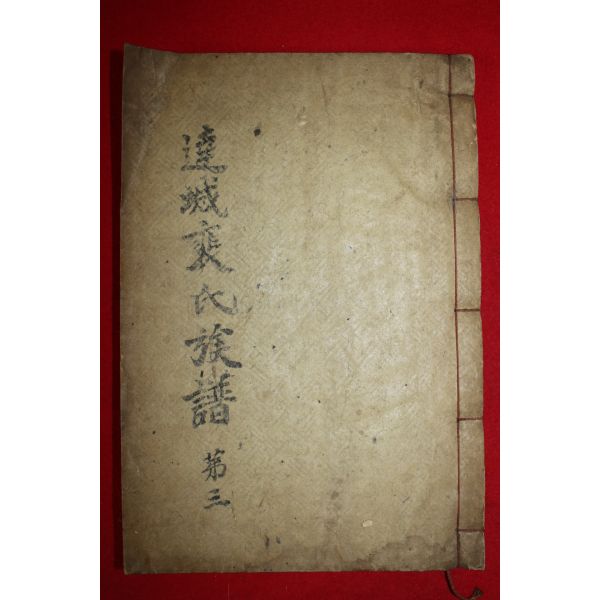 達城裵氏族譜
第三